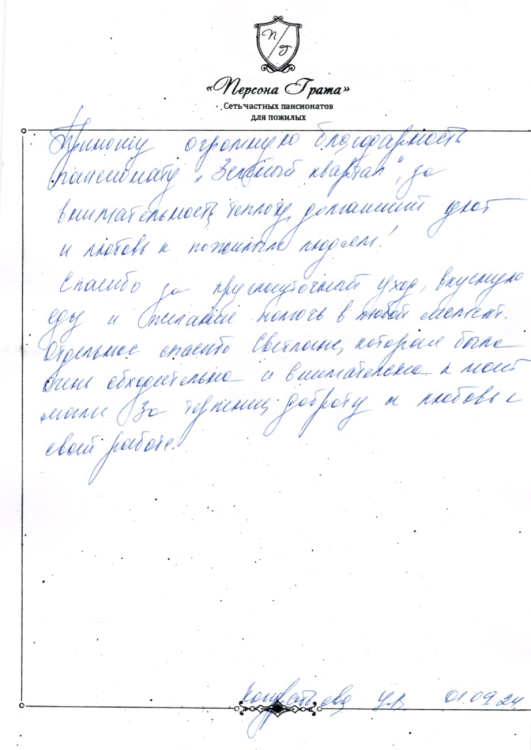 П Г
«Персона Грата»
Сеть частных пансионатов
для пожилых
Приношу огромную благодарность
пансионату „Зелёный квартал", за
внимательность, теплоту, домашний уют
и любовь к пожилым людям!
Спасибо за круглосуточный уход, вкусную
еду и желание помочь в любой момент.
Отдельное спасибо Светлане, которая была
очень обходительна и внимательна к моей
маме. За терпение, доброту и любовь к
своей работе.
01.09.24